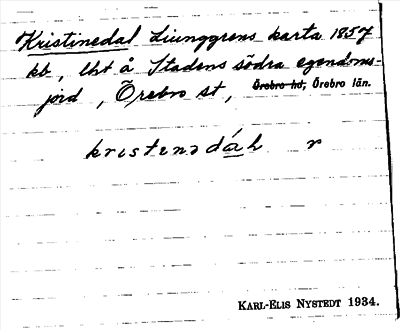 Kristinedal Ljunggrens karta 1857
kb, lht å Stadens södra egendoms-
jord, Örebro st, Örebro hd, Örebro län.
kristenədáh r
KARL-ELIS NYSTEDT 1934.